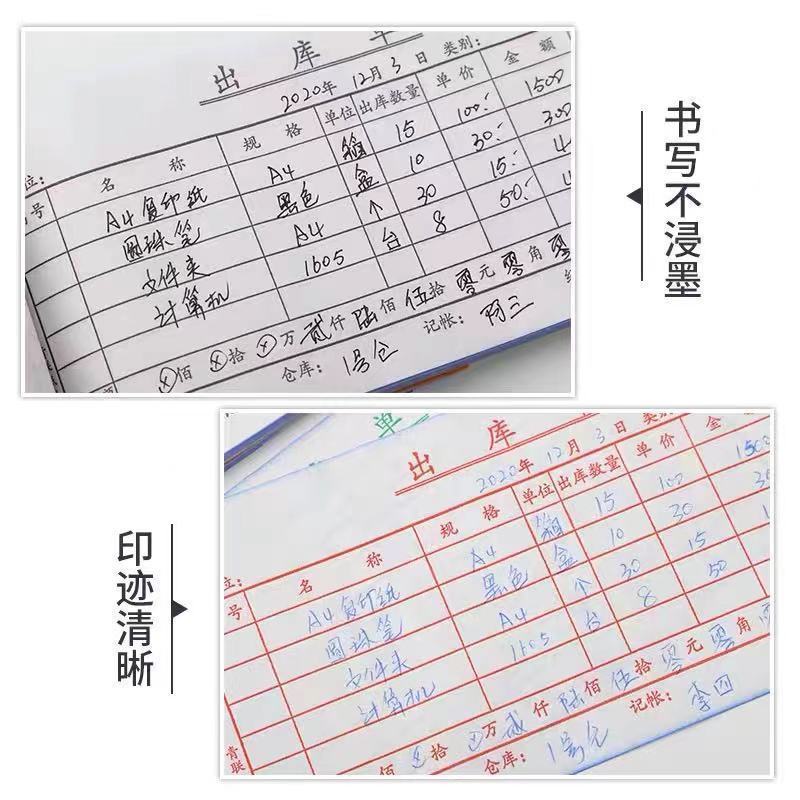 出 库 单
2020年 12月 3日 类别:
位:
号 名 称 规 格 单位 出库数量 单价 金 额
A4复印纸 A4 箱 15 100.- 1500
圆珠笔 黑色 盒 10 30.- 300
文件夹 A4 个 30 15.-
计算机 1605 台 8 50.-
佰 拾 万 贰仟陆佰伍拾零元零角零
仓库: 1号仓 记帐:
书写不浸墨
印迹清晰
单
出 库
2020年 12月 3日 类别
位:
号 名 称 规 格 单位 出库数量 单价 金
A4复印纸 A4 箱 15 100 1500
圆珠笔 黑色 盒 10 30 30
文件夹 A4 个 30 15
计算机 1605 台 8 50
佰 拾 万 贰仟陆佰伍拾零元零角
仓库: 1号仓 记帐: 李四